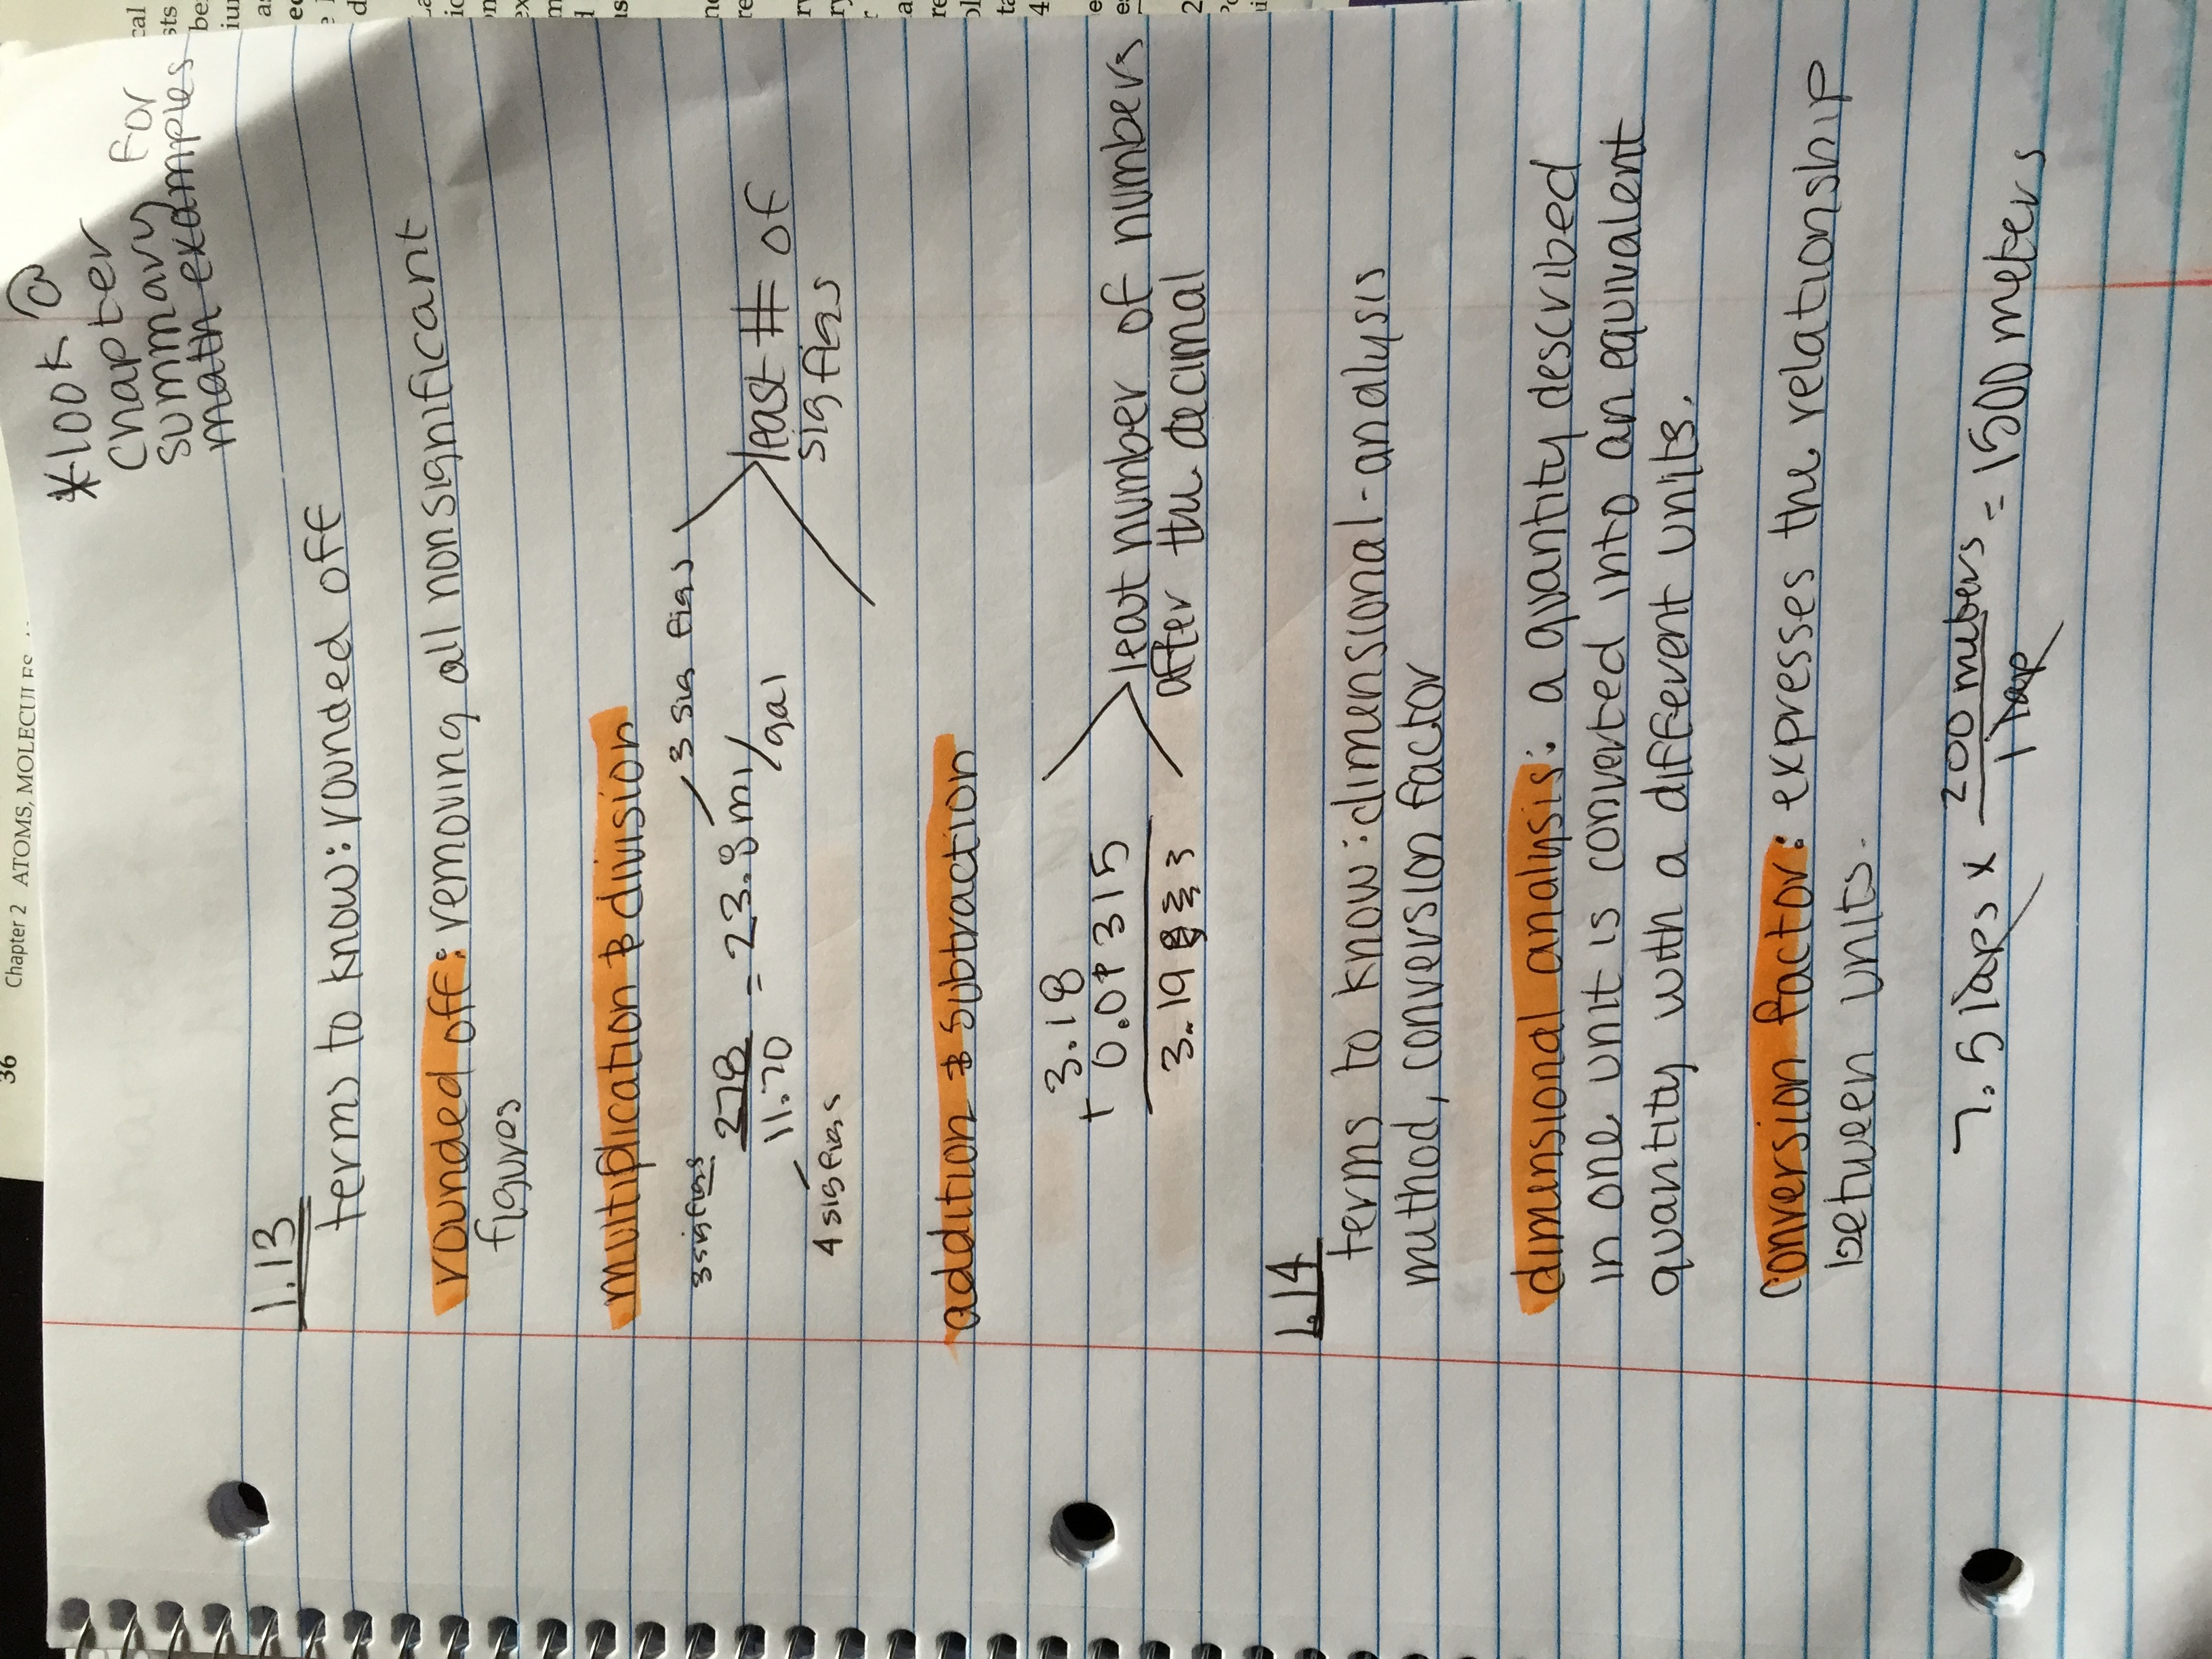 36 Chapter 2 ATOMS, MOLECULES
*look @
chapter
summary for
math examples
1.13
terms to know: rounded off
rounded off: removing all nonsignificant
figures
multiplication & division
3 sig figs
3 sig figs
278
11.70
= 23.8 mi/gal
4 sig figs
least # of
sig figs
addition & subtraction
+ 3.18
0.01315
3.19
least number of numbers
after the decimal
1.14
terms to know: dimensional-analysis
method, conversion factor
dimensional analysis: a quantity described
in one unit is converted into an equivalent
quantity with a different units.
conversion factor: expresses the relationship
between units.
7.5 laps x 200 meters = 1500 meters
1 lap